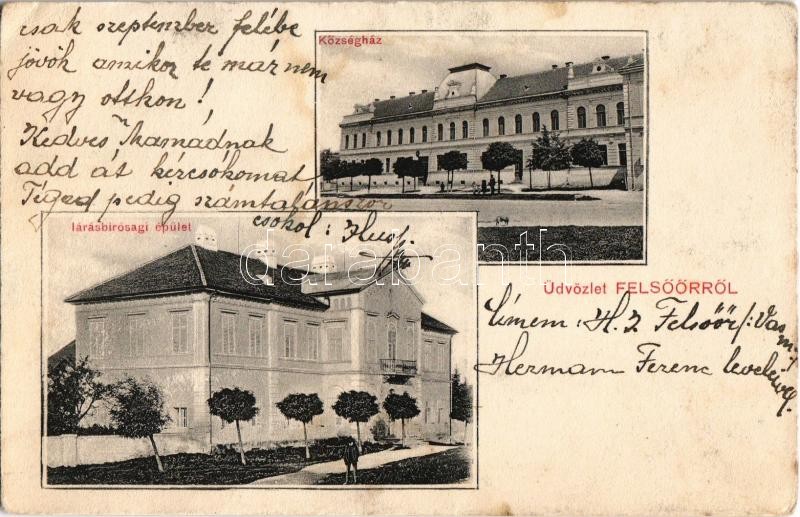 csak szeptember felébe
jövök amikor te már nem
vagy otthon!
Kedves Mamádnak
add át kézcsókomat
Téged pedig számtalanszor
csókol:
Községház
Járásbirósagi épület
darabanth
Üdvözlet FELSŐŐRRŐL
Címem: H. I. Felsőőr /: Vas m.
Hermann Ferenc